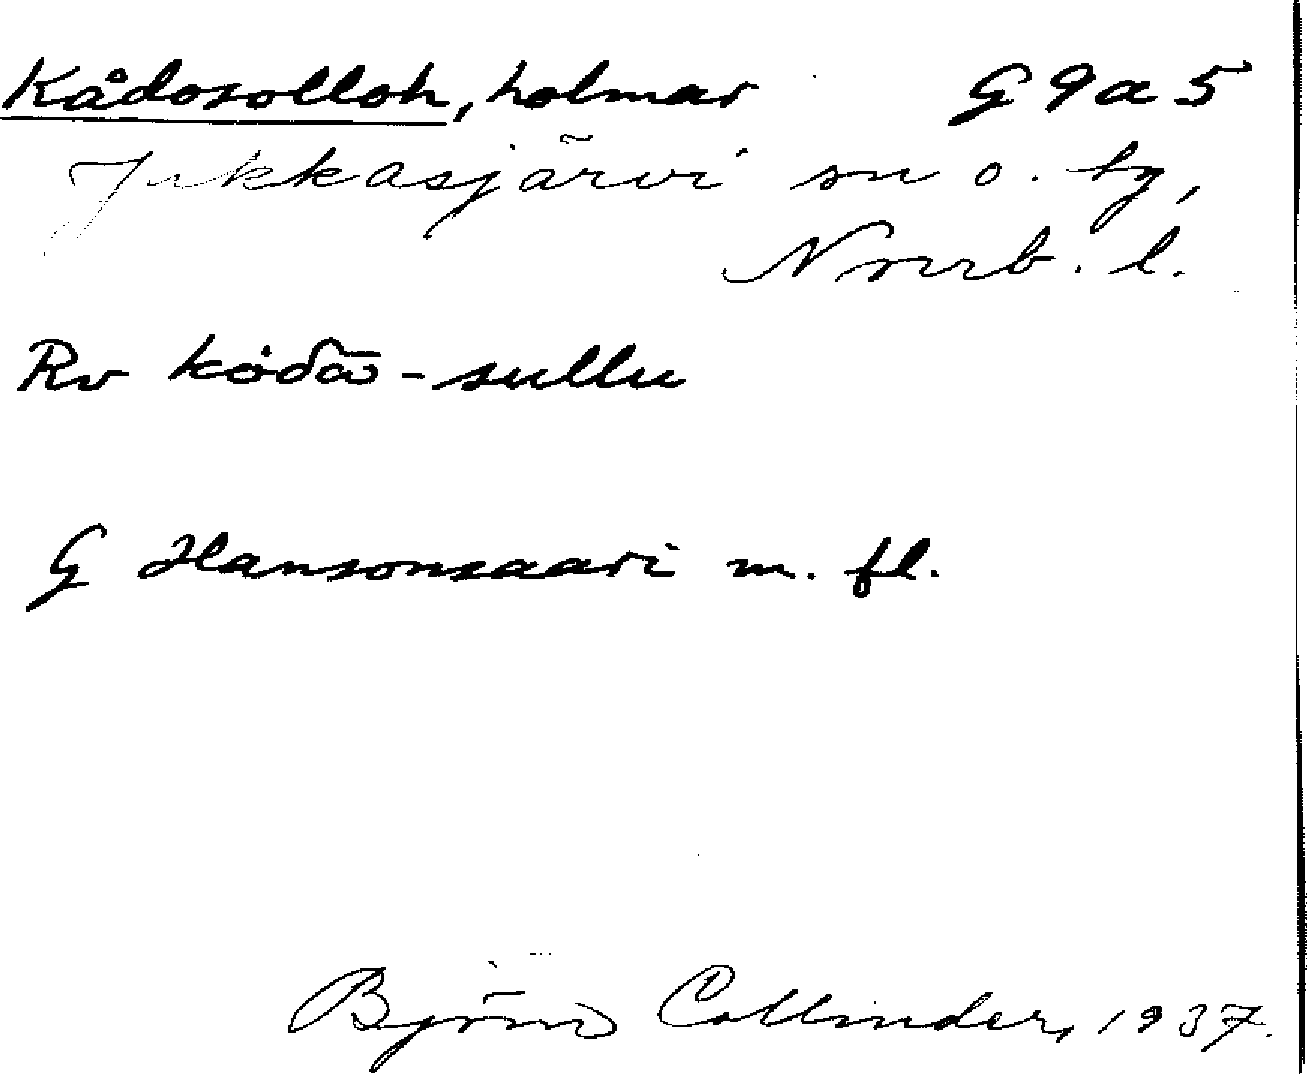 Kådosolloh, holmar G9a5
Jukkasjärvi sn o. tg,
Norrb. l.
Rv kȯδā-sullu
G Hansonsaari m. fl.
Björn Collinder, 1937.